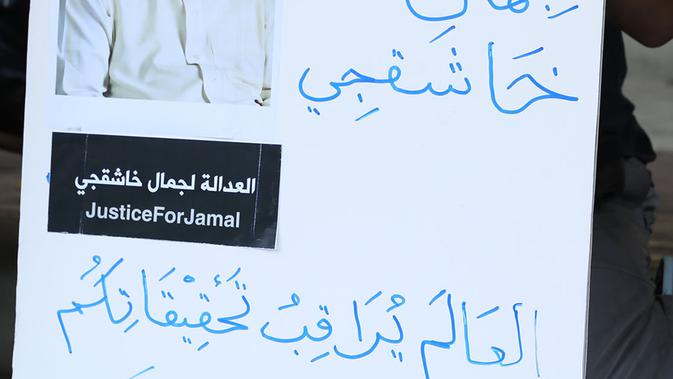 خَاشَقجِي
العدالة لجمال خاشقجي
JusticeForJamal
العَالَم يُرَاقِبُ تَحْقِيْقَاتِكُم